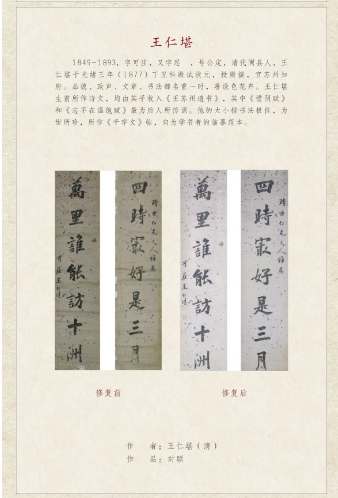 王仁堪
1849-1893，字可庄，又字忍 ，号公定，清代闽县人，王
仁堪于光绪三年（1877）丁丑科殿试状元，授殿撰，官苏州知
府。品德、政声、文章、书法都名重一时，善设色花卉。王仁堪
生前所作诗文，均由其子收入《王苏州遗书》，其中《惜阴赋》
和《志不在温饱赋》最为后人所传诵。他的大小楷书法极佳，为
世所珍，所作《千字文》帖，向为学书者的临摹范本。
四時最好是三月
萬里誰能訪十洲
可莊王仁堪
四時最好是三月
萬里誰能訪十洲
可莊王仁堪
修复前
修复后
作 者：王仁堪（清）
作 品：对联